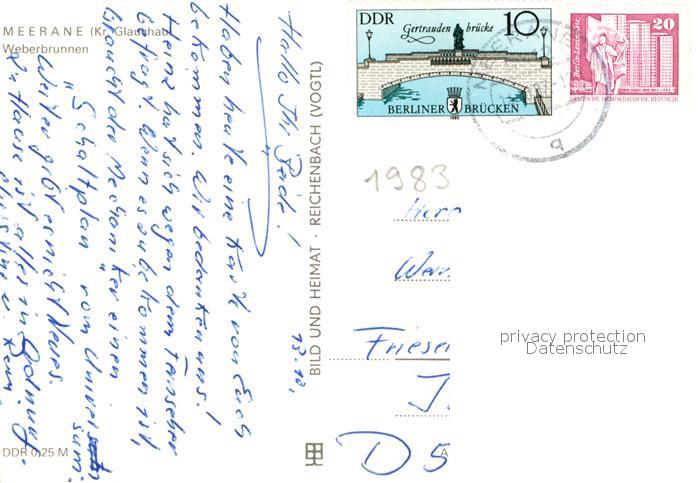 MEERANE (Kr. Glauchau)
Weberbrunnen
13.12.
Hallo Ihr Beide!
Haben heute eine Karte von Euch
bekommen. Wir bedanken uns!
hat sich wegen dem Fernseher
befragt. Wenn es zu bekommen ist,
braucht der Mechaniker einen
"Schaltplan" vom Univer
sum.
Weiter gibt es nichts Neues.
Zu Hause ist alles in Ordnung.
DDR 0,25 M
BILD UND HEIMAT · REICHENBACH (VOGTL)
DDR
Gertraudenbrücke
10
BERLINER BRÜCKEN
1985
20
Berlin-Leninplatz
DEUTSCHE DEMOKRATISCHE REPUBLIK
a
1983
Herr
Friese
J
D 5
A
privacy protection
Datenschutz